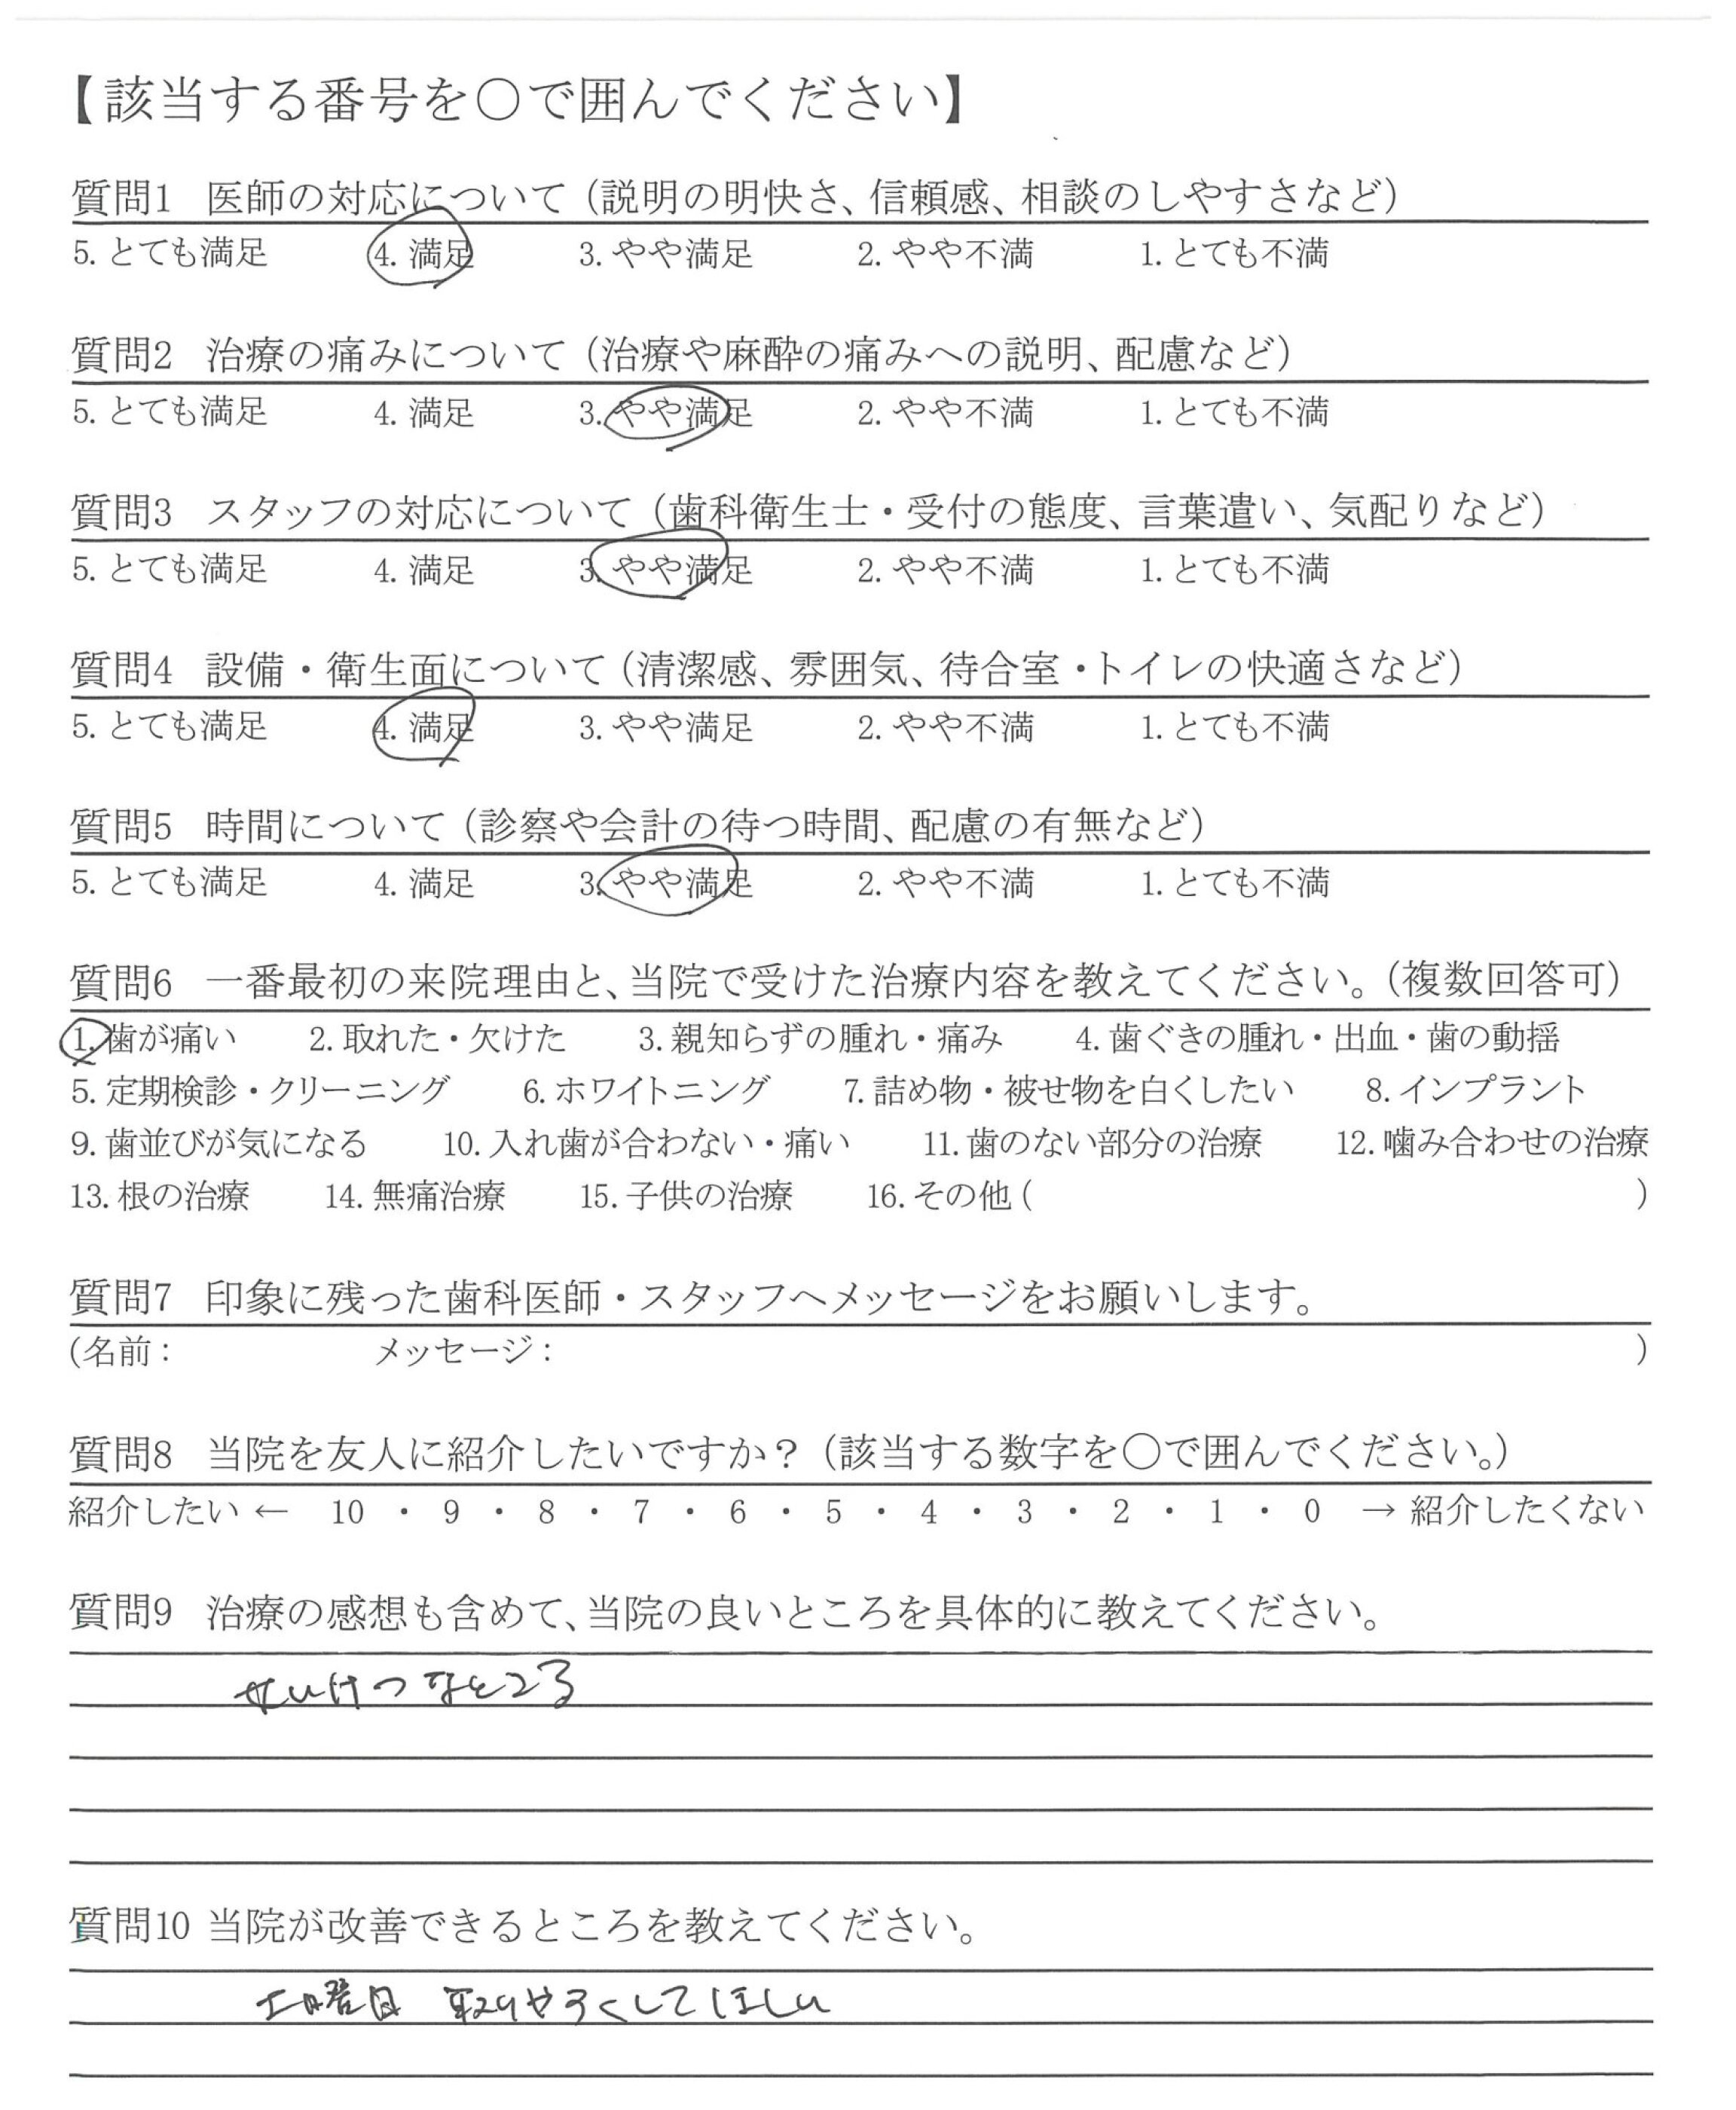 【該当する番号を○で囲んでください】
質問1 医師の対応について（説明の明快さ、信頼感、相談のしやすさなど）
5. とても満足 4. 満足 3. やや満足 2. やや不満 1. とても不満
質問2 治療の痛みについて（治療や麻酔の痛みへの説明、配慮など）
5. とても満足 4. 満足 3. やや満足 2. やや不満 1. とても不満
質問3 スタッフの対応について（歯科衛生士・受付の態度、言葉遣い、気配りなど）
5. とても満足 4. 満足 3. やや満足 2. やや不満 1. とても不満
質問4 設備・衛生面について（清潔感、雰囲気、待合室・トイレの快適さなど）
5. とても満足 4. 満足 3. やや満足 2. やや不満 1. とても不満
質問5 時間について（診察や会計の待つ時間、配慮の有無など）
5. とても満足 4. 満足 3. やや満足 2. やや不満 1. とても不満
質問6 一番最初の来院理由と、当院で受けた治療内容を教えてください。（複数回答可）
1. 歯が痛い 2. 取れた・欠けた 3. 親知らずの腫れ・痛み 4. 歯ぐきの腫れ・出血・歯の動揺
5. 定期検診・クリーニング 6. ホワイトニング 7. 詰め物・被せ物を白くしたい 8. インプラント
9. 歯並びが気になる 10. 入れ歯が合わない・痛い 11. 歯のない部分の治療 12. 噛み合わせの治療
13. 根の治療 14. 無痛治療 15. 子供の治療 16. その他 ( )
質問7 印象に残った歯科医師・スタッフへメッセージをお願いします。
(名前： メッセージ： )
質問8 当院を友人に紹介したいですか？（該当する数字を○で囲んでください。）
紹介したい ← 10 ・ 9 ・ 8 ・ 7 ・ 6 ・ 5 ・ 4 ・ 3 ・ 2 ・ 1 ・ 0 → 紹介したくない
質問9 治療の感想も含めて、当院の良いところを具体的に教えてください。
せいけつなところ
質問10 当院が改善できるところを教えてください。
土曜日 取りやすくしてほしい